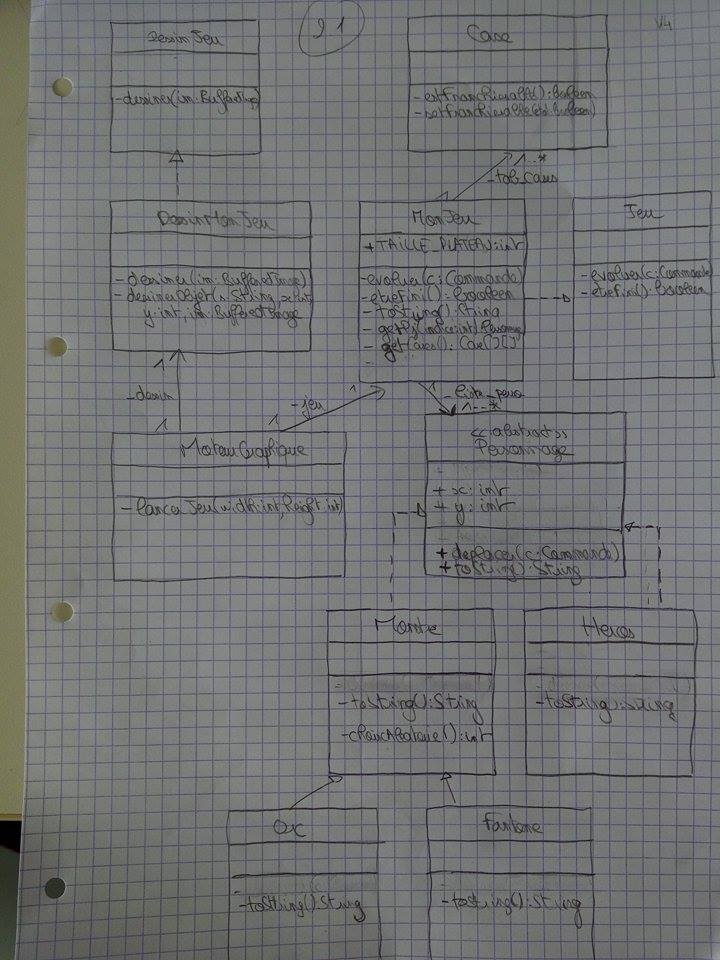 DessinJeu
-dessiner(im:BufferedImage)
2 1
V4
Case
-estFranchissable():boolean
-setFranchissable(etat:boolean)
1..*
-tab_cases
1
DessinMonJeu
-dessiner(im:BufferedImage)
-dessinerObjet(s:String,x:int,
y:int,im:BufferedImage
MonJeu
+TAILLE_PLATEAU:int
-evoluer(c:Commande)
-etreFini():boolean
-toString():String
-getPj(indice:int):Personnage
-getCases():Case[][]
Jeu
-evoluer(c:Commande)
-etreFini():boolean
1
-dessin
1
1
-jeu
1
1
-liste_perso
1..*
MoteurGraphique
-lancerJeu(width:int,height:int)
<<abstract>>
Personnage
+x:int
+y:int
+deplacer(c:Commande)
+toString():String
Monstre
-toString():String
-choixAleatoire():int
Heros
-toString():String
Orc
-toString():String
Fantome
-toString():String